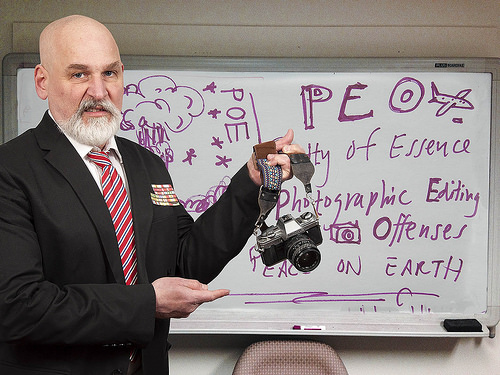 POE
PEO
of Essence
Photographic Editing
Offenses
ON EARTH